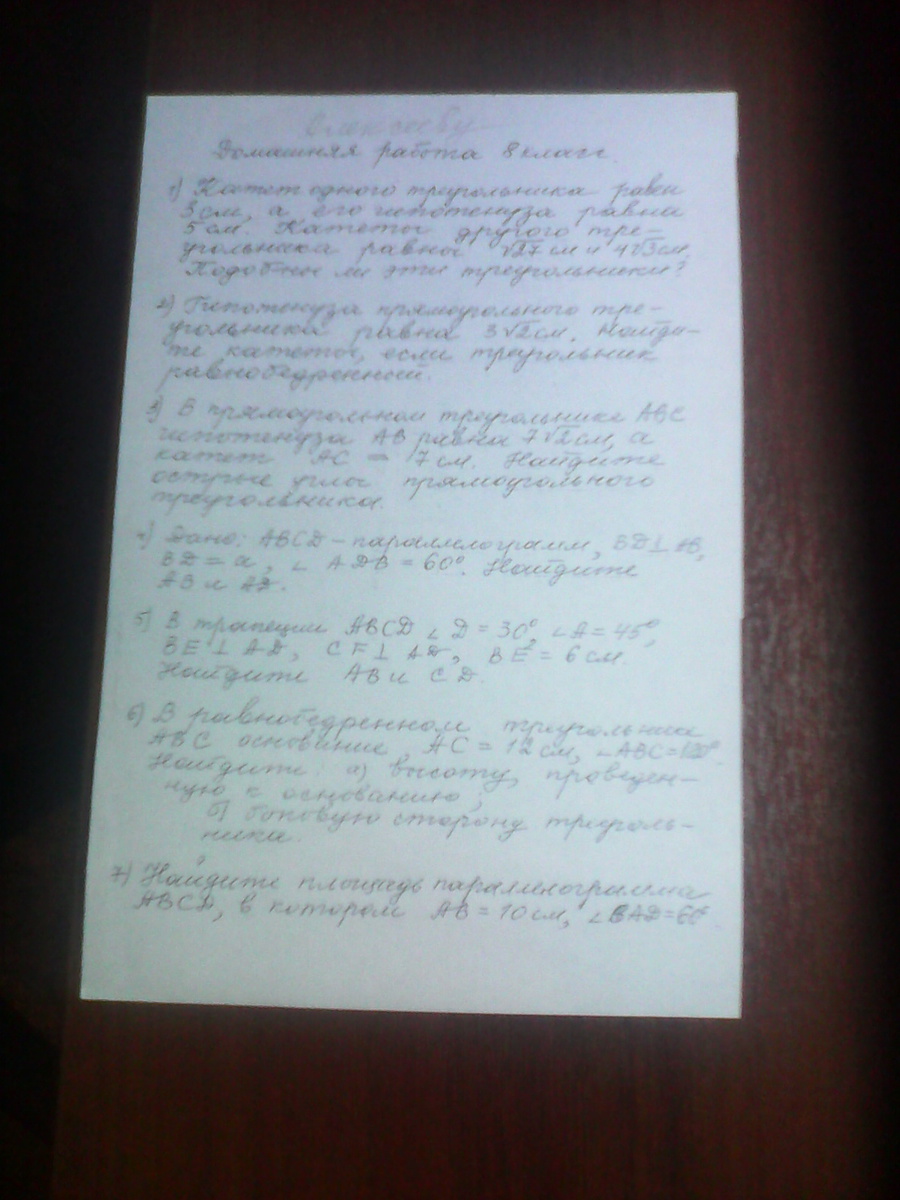 Домашняя работа 8 класс.
1) Катет одного треугольника равен
3 см, а его гипотенуза равна
5 см. Катеты другого тре-
угольника равны √27 см и 4√3 см.
Подобны ли эти треугольники?
2) Гипотенуза прямоугольного тре-
угольника равна 3√2 см. Найди-
те катеты, если треугольник
равнобедренный.
3) В прямоугольном треугольнике ABC
гипотенуза AB равна 7√2 см, а
катет AC = 7 см. Найдите
острые углы прямоугольного
треугольника.
4) Дано: ABCD – параллелограмм, BD⊥AB,
BD = a, ∠ADB = 60°. Найдите
AB и AD.
5) В трапеции ABCD ∠D = 30°, ∠A = 45°,
BE⊥AD, CF⊥AD, BE = 6 см.
Найдите AB и CD.
6) В равнобедренном треугольнике
ABC основание AC = 12 см, ∠ABC = 120°.
Найдите: а) высоту, проведен-
ную к основанию;
б) боковую сторону треуголь-
ника.
7) Найдите площадь параллелограмма
ABCD, в котором AB = 10 см, ∠BAD = 60°